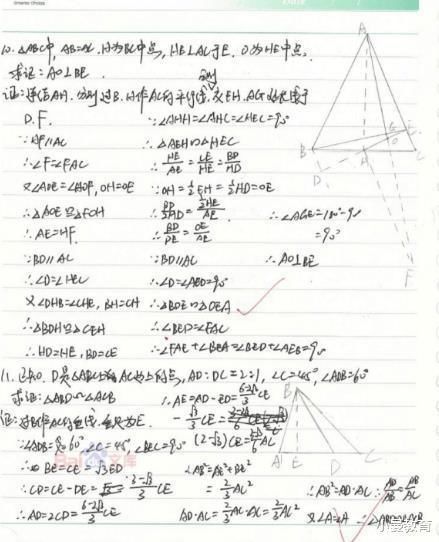 10. △ABC中, AB=AC. H为BC中点, HE⊥AC于E. O为HE中点.
求证: AO⊥BE.
证: 连结AH. 分别过B.H作AC的平行线, 交EH. AG延长于
D.F.
∵AF∥AC
∴∠F=∠FAC
又∠AOE=∠HOF, OH=OE
∴△AOE≌△FOH
∴AE=HF.
∵BD∥AC
∴∠D=∠HEC
又∠DHB=∠CHE, BH=CH
∴△BDH≌△CEH
∴HD=HE, BD=CE
∵∠AHH=∠AHC=∠HEC=90°
∴△AEH∽△HEC
∴HE/AE=CE/HE=BD/HD
∵OH=½EH=½HD=OE
∴BD/DE=OE/AE
∵BD∥AC
∴∠D=∠AED=90°
∴△BDE∽△OEA
∴∠BED=∠FAC
∴∠FAE+∠BEA=∠BED+∠AEB=90°
∴∠AGE=180°-90°
=90°
∴AO⊥BE
A
B
C
D
F
11. 已知, D是△ABC的AC边上的点, AD:DC=2:1, ∠C=45°, ∠ADB=60°
求证: △ABD∽△ACB
证: 过B作AC的垂线, 垂足为E.
∵∠ADB=60° ∠C=45°, ∠BEC=90°
∴BE=CE=√3ED
∴CD=CE-DE=(3-√3)/3 CE
∴AD=2CD=(6-2√3)/3 CE
∴AE=AD-ED=
∴AB²=AE²+BE²
=2/3 AC²
AD·AC=2/3 AC·AC=2/3 AC²
∴AB²=AD·AC ∴AD/AB=AB/AC
又∠A=∠A ∴△ABD∽△ACB
B
A E D C
小爱教育